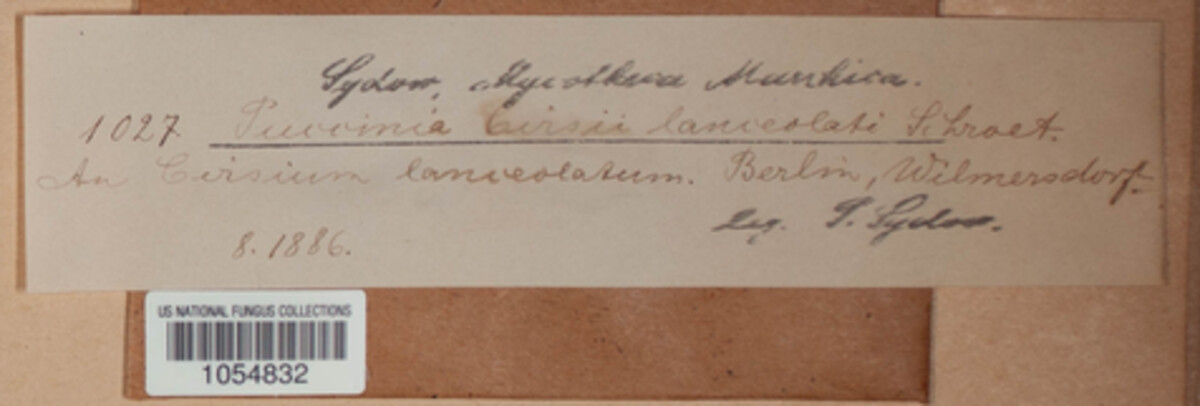 Sydow, Mycotheca Marchica.
1027 Puccinia Cirsii lanceolati Schroet.
An Cirsium lanceolatum. Berlin, Wilmersdorf.
leg. P. Sydow.
8. 1886.
US NATIONAL FUNGUS COLLECTIONS
1054832